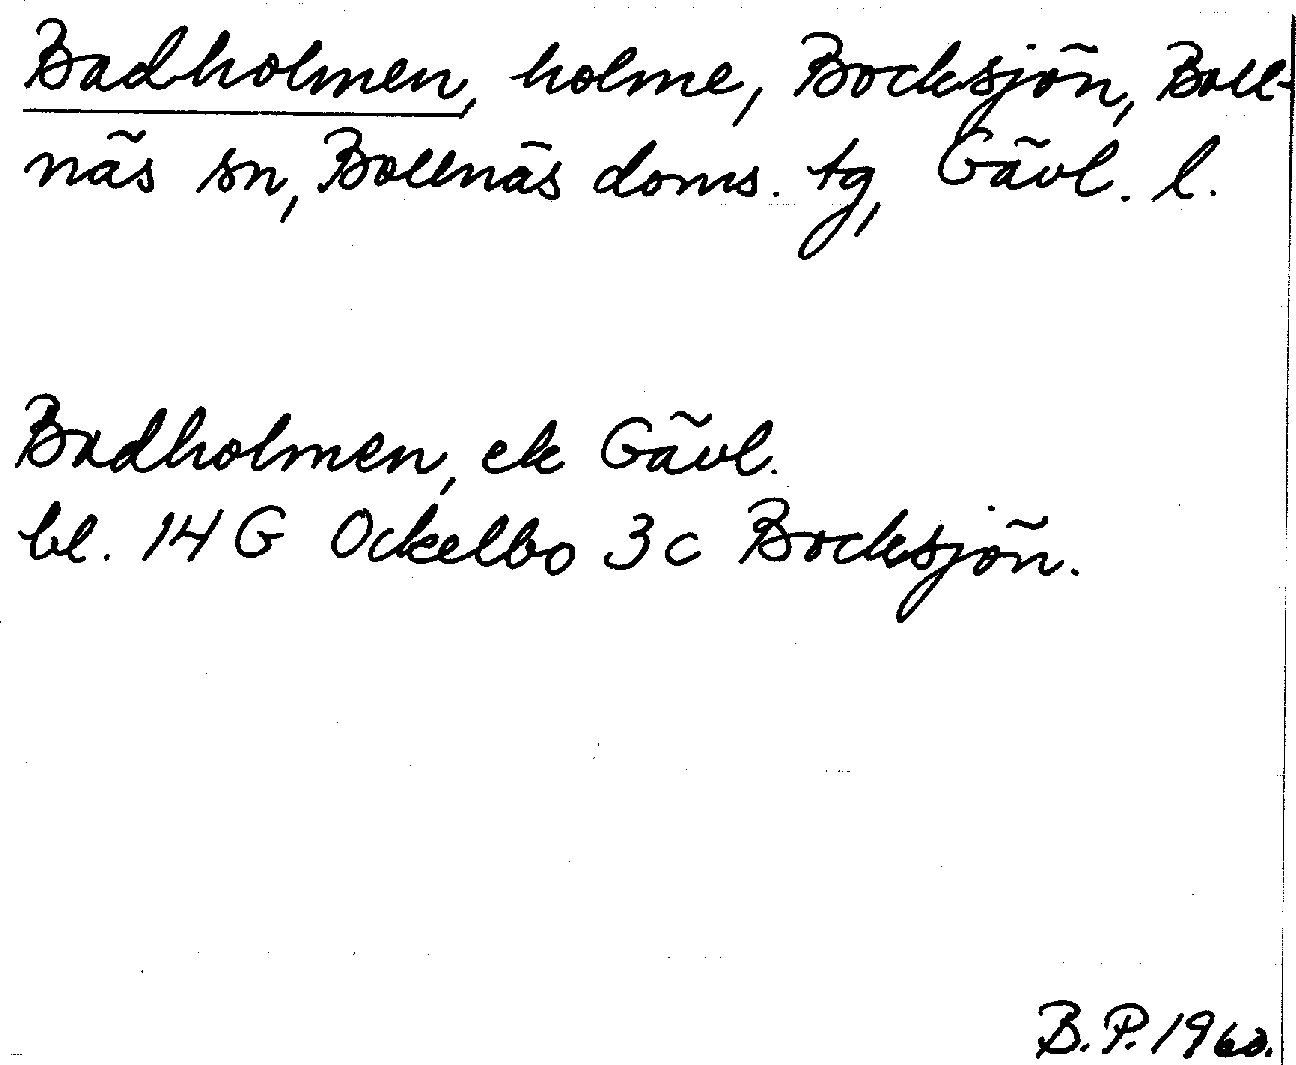 Badholmen, holme, Bocksjön, Boll-
näs sn, Bollnäs doms. tg, Gävl. l.
Badholmen, ek Gävl.
bl. 14 G Ockelbo 3 c Bocksjön.
B.P. 1960.